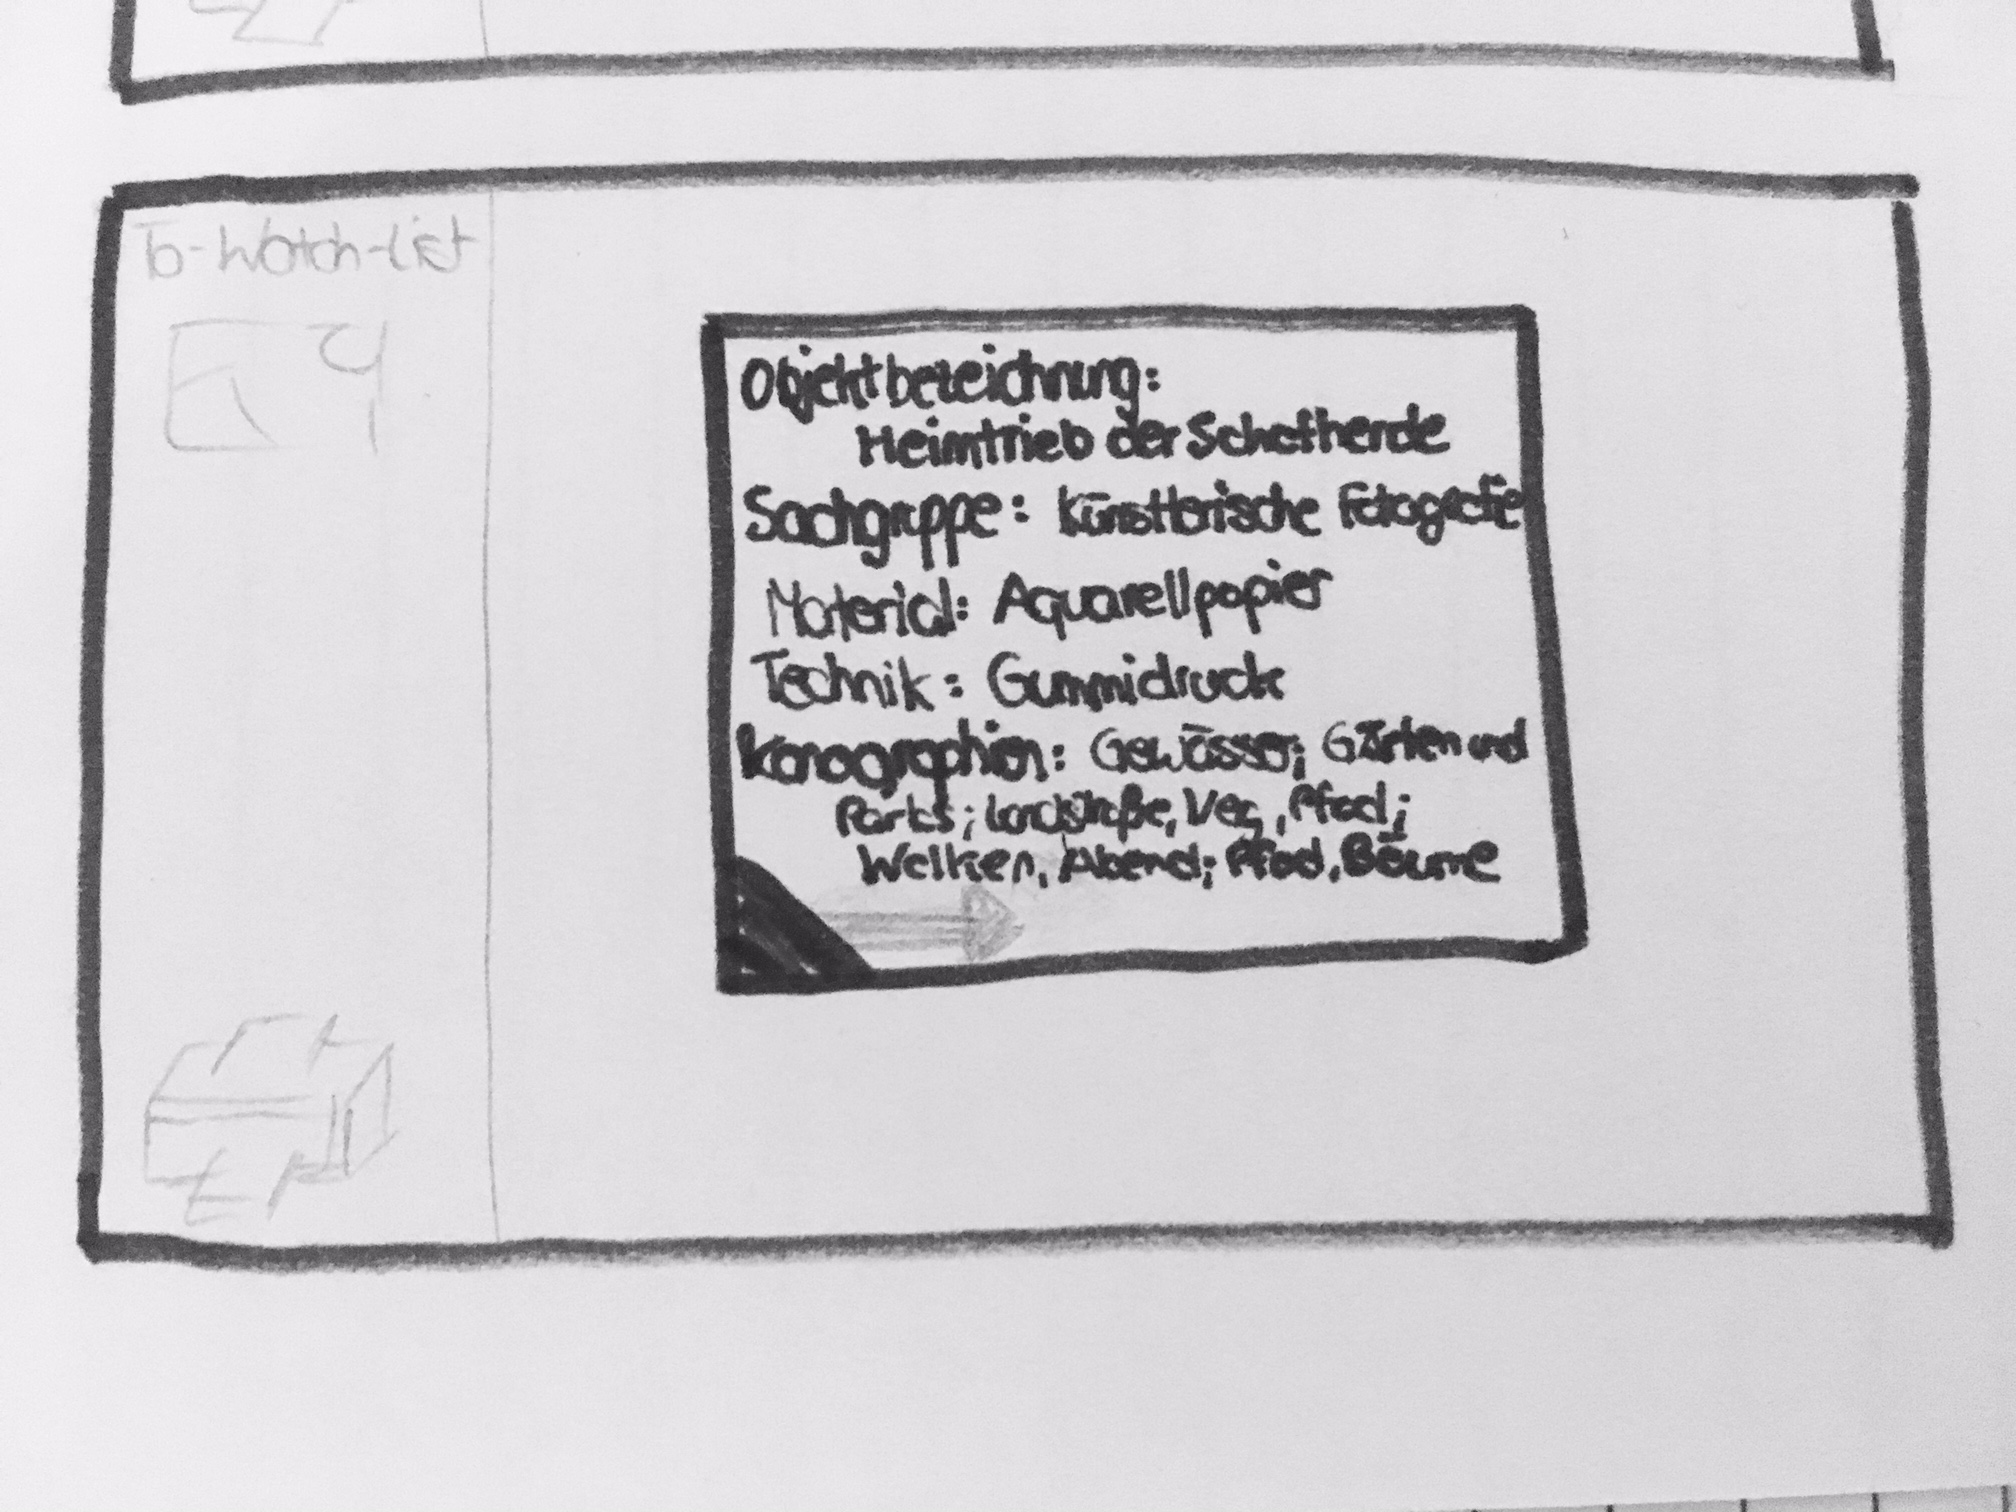 To-Watch-List
Objektbezeichnung:
Heimtrieb der Schafherde
Sachgruppe: Künstlerische Fotografie
Material: Aquarellpapier
Technik: Gummidruck
Ikonographien: Gewässer; Gärten und
Parks; Landstraße, Weg, Pfad;
Wolken, Abend; Pfad, Bäume